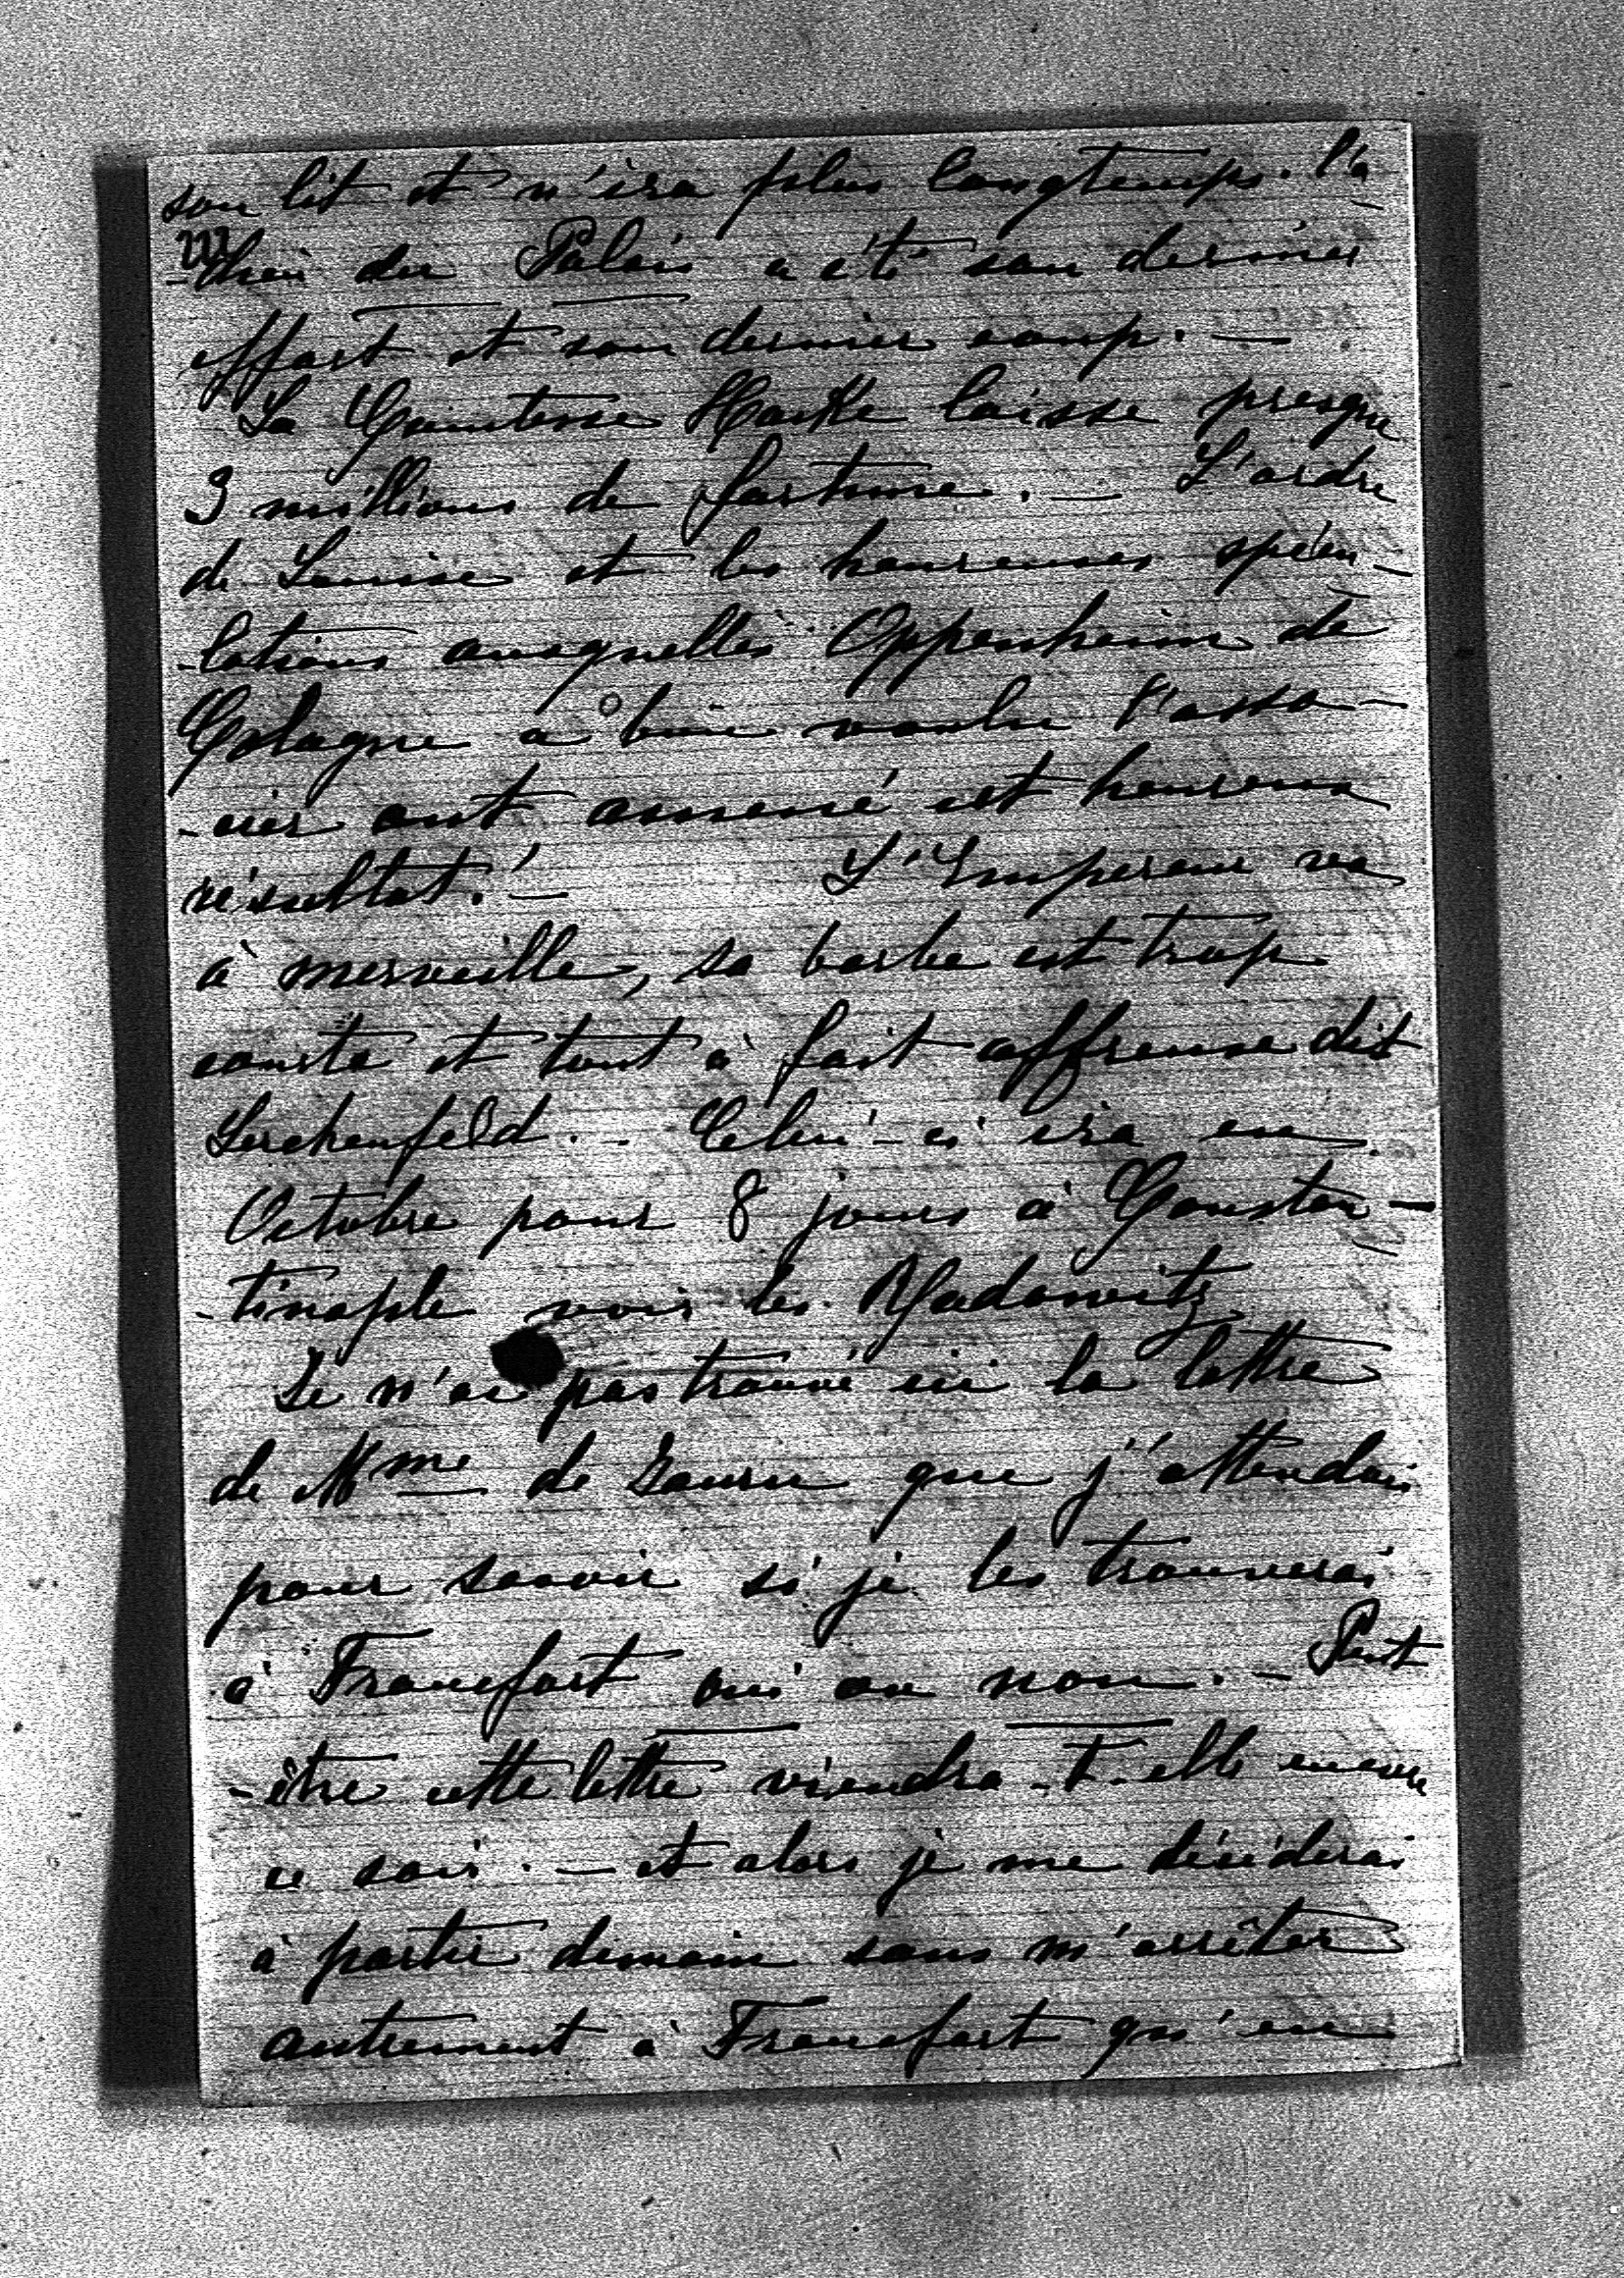 son lit et n'ira plus longtemps. l'a
du Palais a été son dernier
effort et son dernier coup. —
La Comtesse Hacke laisse presque
3 millions de fortune. — L'ordre
de Louise et les heureuses spécu-
-lations auxquelles Oppenheim de
Cologne a bien voulu l'asso-
-cier ont amené cet heureux
résultat! — L'Empereur va
à merveille, sa barbe est trop
courte et tout à fait affreuse dit
Lerchenfeld. - Celui-ci ira en
Octobre pour 8 jours à Constan-
-tinople voir les Radowitz
Je n'ai pas trouvé ici la lettre
de Mme de que j'attendais
pour savoir si je les trouverai
à Francfort oui ou non. — Peut
-être cette lettre viendra-t-elle encore
ce soir. — et alors je me déciderai
à partir demain sans m'arrêter
autrement à Francfort qu'en